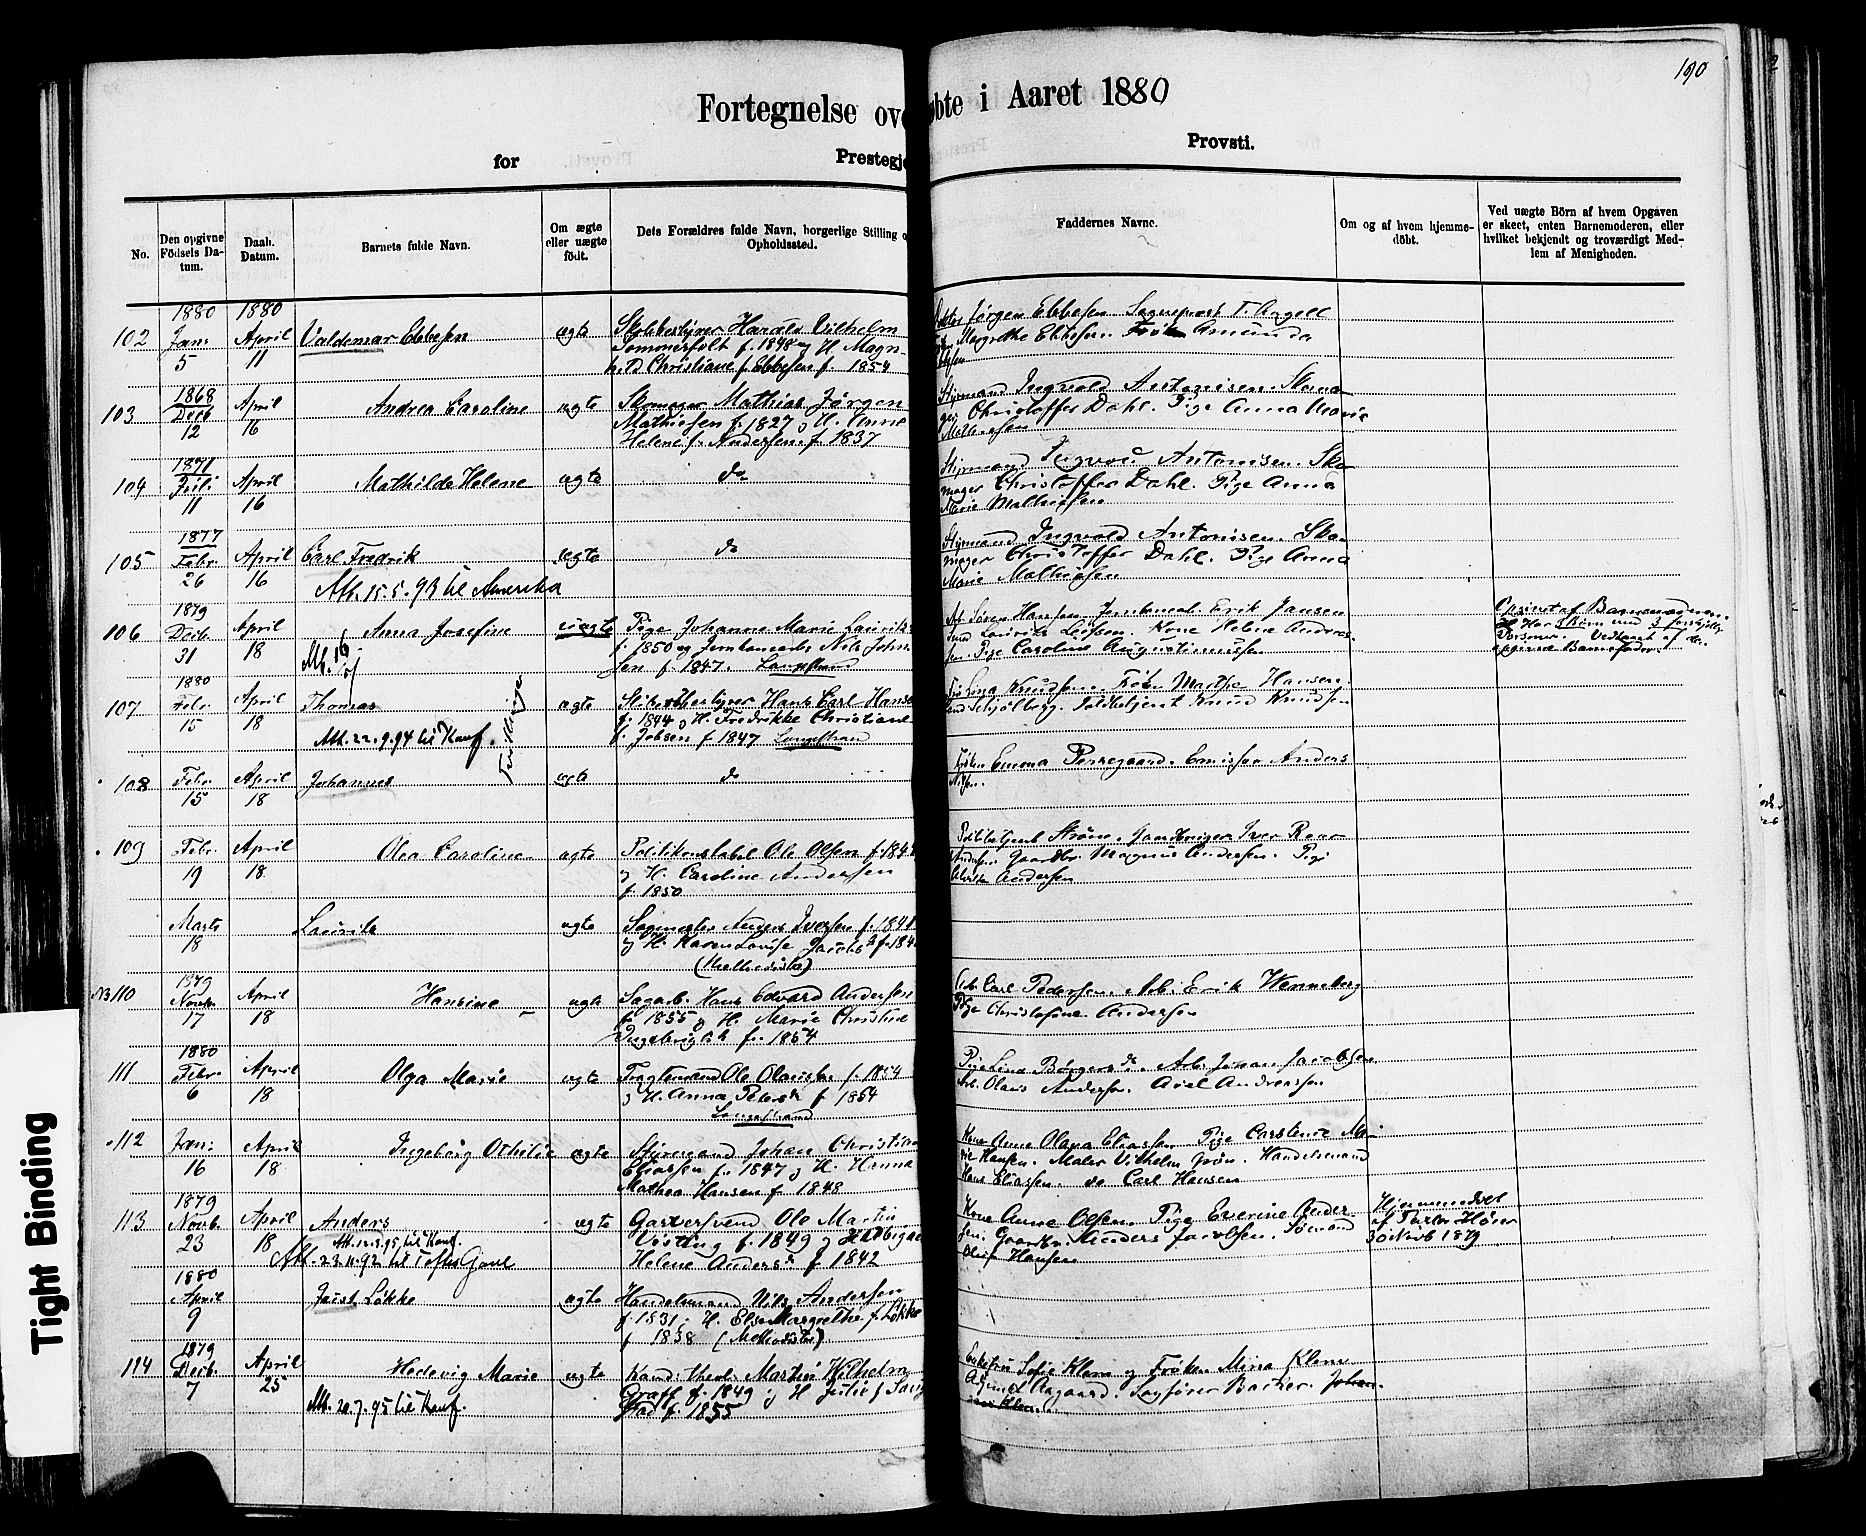 190
Fortegnelse ov
bte i Aaret 1880
for
Prestegj
Provsti.
No.
Den opgivne Födsels Da-
tum.
Daab.
Datum.
Barnets fulde Navn.
Om ægte
eller uægte
födt.
Dets Forældres fulde Navn, borgerlige Stilling o
Opholdssted.
Faddernes Navne.
Om og af hvem hjemme-
döbt.
Ved uægte Börn af hvem Opgaven
er skeet, enten Barnemoderen, eller
hvilket bekjendt og troværdigt Med-
lem af Menigheden.
1880 1880
102 Jan: 5 April 11 Valdemar Ebbesen ægte
Harald Vilhelm
Sommerfelt f. 1848 og H. Magn-
hild Christiane f. Ebbesen f. 1854
Jørgen Ebbesen Sogneprest T. Angell
Margrethe Ebbesen Amunda
Ebbesen
103 1868 Decb 12 April 16 Andrea Caroline ægte
Skomager Mathias Jørgen
Mathiesen f. 1827 og H. Anne
Helene f. Andersen f. 1837
Styrmand Ingvald Antonisen. Skoma-
ger Christoffer Dahl. Pige Anna Marie
Mathiesen
104 1871 Juli 11 April 16 Mathilde Helene ægte do
Styrmand Ingvald Antonisen. Sko-
mager Christoffer Dahl. Pige Anna
Marie Mathiesen
105 1877 Febr. 26 April 16 Carl Fredrik ægte do
Att. 15.5.93 til Amerika
Styrmand Ingvald Antonisen. Sko-
mager Christoffer Dahl. Pige Anna
Marie Mathiesen
106 1879 Decb. 31 April 18 Anna Josefine uægte
Pige Johanne Marie Laurits
f. 1850 og Jernbanearb. Nils John
sen f. 1847. Langestrand
Arb. Søren Hansen, Jernbanearb. Erik Jansen
Laurits Leifsen. Kone Helene Anders-
sen. Pige Caroline Augustinussen
Opgivet af Barnemoderen
Har 3 Børn med 3 forskjellige
Personer. Vedtaget af den
opgivne Barnefader.
107 1880 Febr. 15 April 18 Thomas ægte
Att. 22.9.94 til Konf.
Tvillinge
Hans Carl Hanse
f. 1844 og H. Fredrikke Christiane
f. Jobsen f. 1847 Langestran
Lina Knudsen. Frøken Marthe Hansen.
Schjølberg. Toldbetjent Knud Knudsen
108 Febr. 15 April 18 Johannes ægte do
Frøken Emma Perregaard. Anders
Nilsen.
109 Febr. 19 April 18 Olea Caroline ægte
Politikonstabel Ole Olsen f. 184
og H. Caroline Andersen
f. 1850
Politibetjent Strøm. Gaardbruger Iver Roar
Andersen. Gaardbr. Magnus Andersen. Pige
Andersen
Marts 18 Laurits ægte
Sagmester Anders Iversen f. 184
og H. Karen Louise Jacobsd f. 184
(Methodister)
110 1879 Novbr 17 April 18 Hansine ægte
Sagarb. Hans Edvard Andersen
f. 1855 og H. Marie Christine
Ingebrigtsd. f. 1854
Arb Carl Pedersen. Arb. Erik Wenneberg
Pige Christofine Andersen
111 1880 Febr. 6 April 18 Olga Marie ægte
Fragtemand Ole Olaussen f. 1854
og H. Anna Petersd f 1854
Langestrand
Pige Lina Børgersd. Arb. Johan Jacobsen
Arb. Olaus Andersen. Axel Andreassen
112 Jan: 16 April 18 Ingeborg Othilie ægte
Styrmand Johan Christian
Eliassen f. 1847 og H. Hanna
Mathea Hansen f. 1848
Kone Anne Olava Eliassen Pige Carstense Ma-
rie Hansen. Maler Vilhelm Grøn. Handelsmand
Hans Eliassen. do Carl Hansen
113 1879 Novb. 23 April 18 Anders ægte
Att. 12.3.95 til Konf.
Att. 23.11.92 til Toftes Gave
Garversvend Ole Martin
Visting f. 1849 og H. Abigael
Helene Andersd f 1842
Kone Anne Olsen. Pige Everine Ander-
sen. Gaardbr. Anders Jacobsen. Sømand
Oluf Hansen
Hjemmedøbt
af Pastor Høier
30 Novb 1879
1880 April 9 Just Løkke ægte
Handelsmand Nils Andersen
f. 1831 og H. Else Margrethe f. Løkke
f. 1838 (Methodister)
114 1879 Decb. 7 April 25 Hedevig Marie ægte
Att. 20.7.95 til Konf.
Kand. theol. Martin Wilhelm
Graff f. 1849 og H Julie f Lang
stad f. 1855
Enkefru Sofie Klem og Frøken Mina Klem
Adjunkt Aagaard. Lagfører Backer. Johan-
Klem
Tight Binding